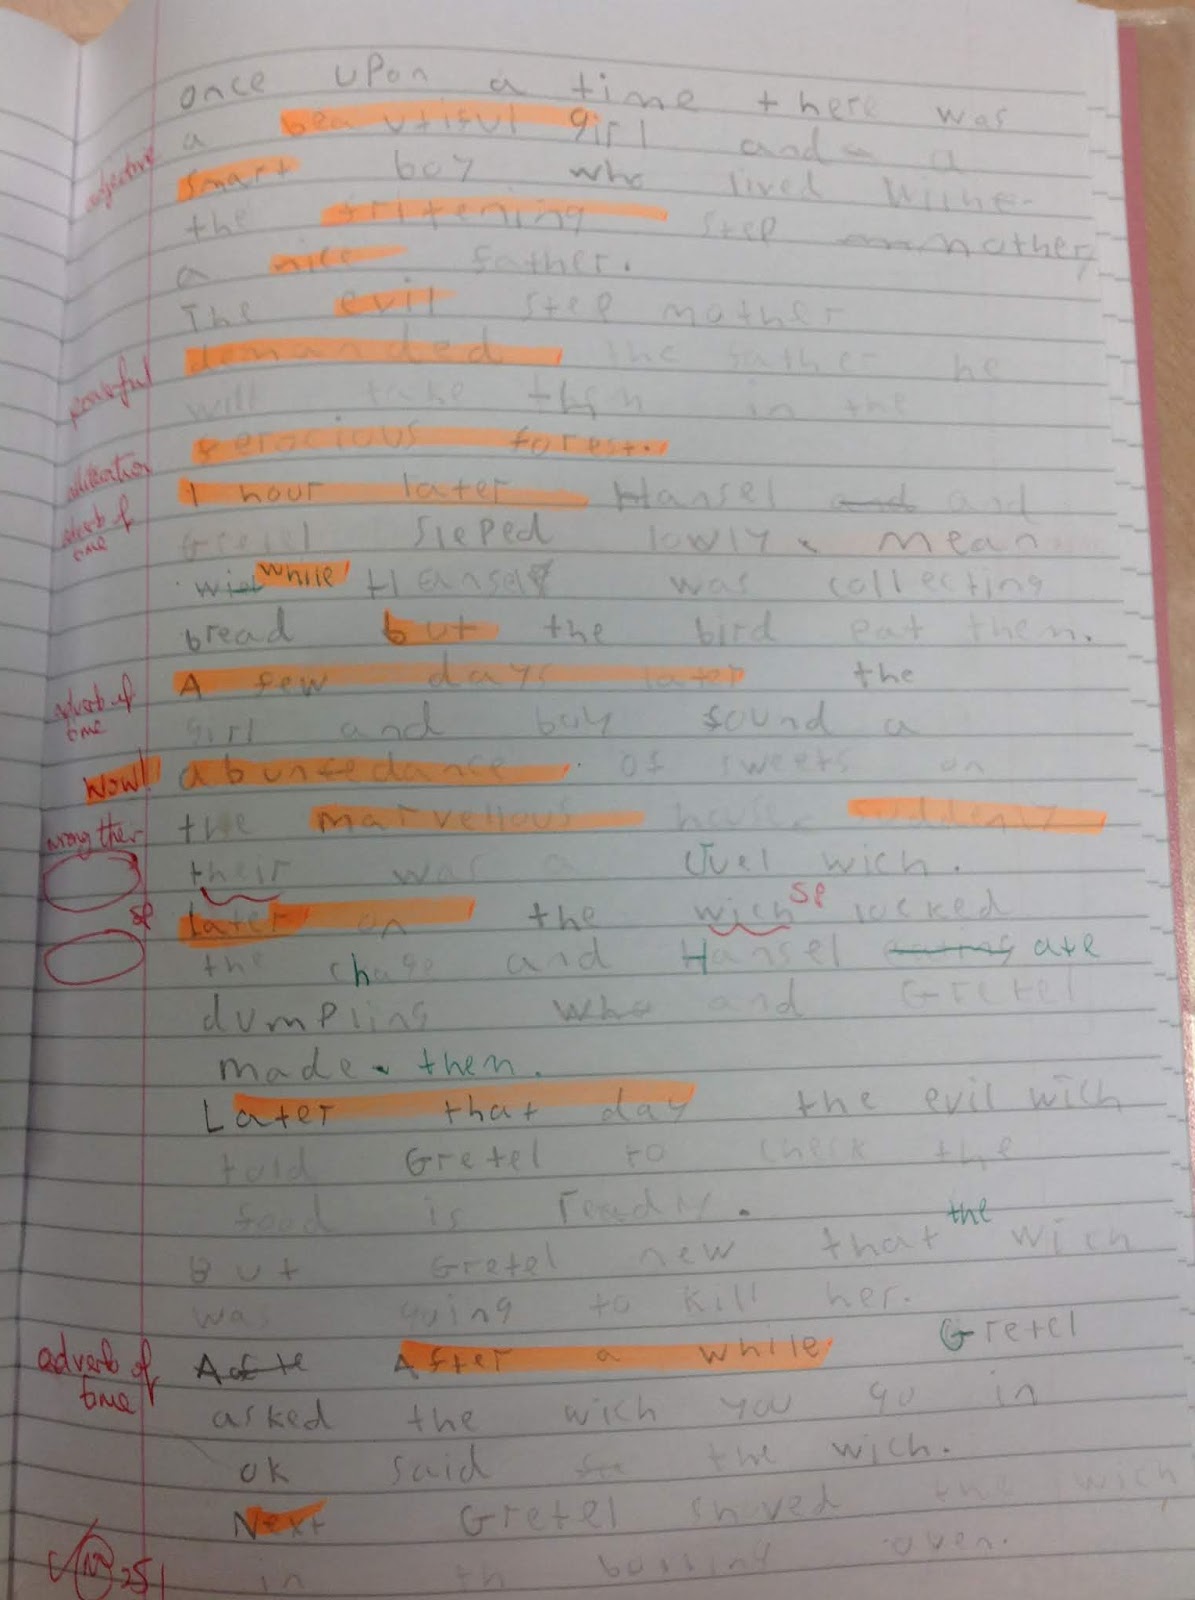 once upon a time there was
a beautisul girl and a
adjective
smart boy who lived withe
the fritening step mother,
a nice father.
The evil step mother
powerful
demanded the father he
will take then in the
alliteration
ferocious forest.
1 hour later Hansel and and
adverb of time
Gretel sleped lowly. mean
while Hansel was collecting
bread but the bird eat them.
A few days later the
adverb of time
girl and boy found a
wow! abuntedance of sweets on
the marvellous house. suddenly
wrong ther
their was a cruel wich.
sp
later on the wich locked
sp
the chage and Hansel eating ate
dumpling who and Gretel
made then.
Later that day the evil wich
told Gretel to check the
food is ready.
But Gretel new that the wich
was going to kill her.
adverb of time
Afte After a while Gretel
asked the wich you go in
ok said the wich.
Next Gretel shoved the wich
in th oven.